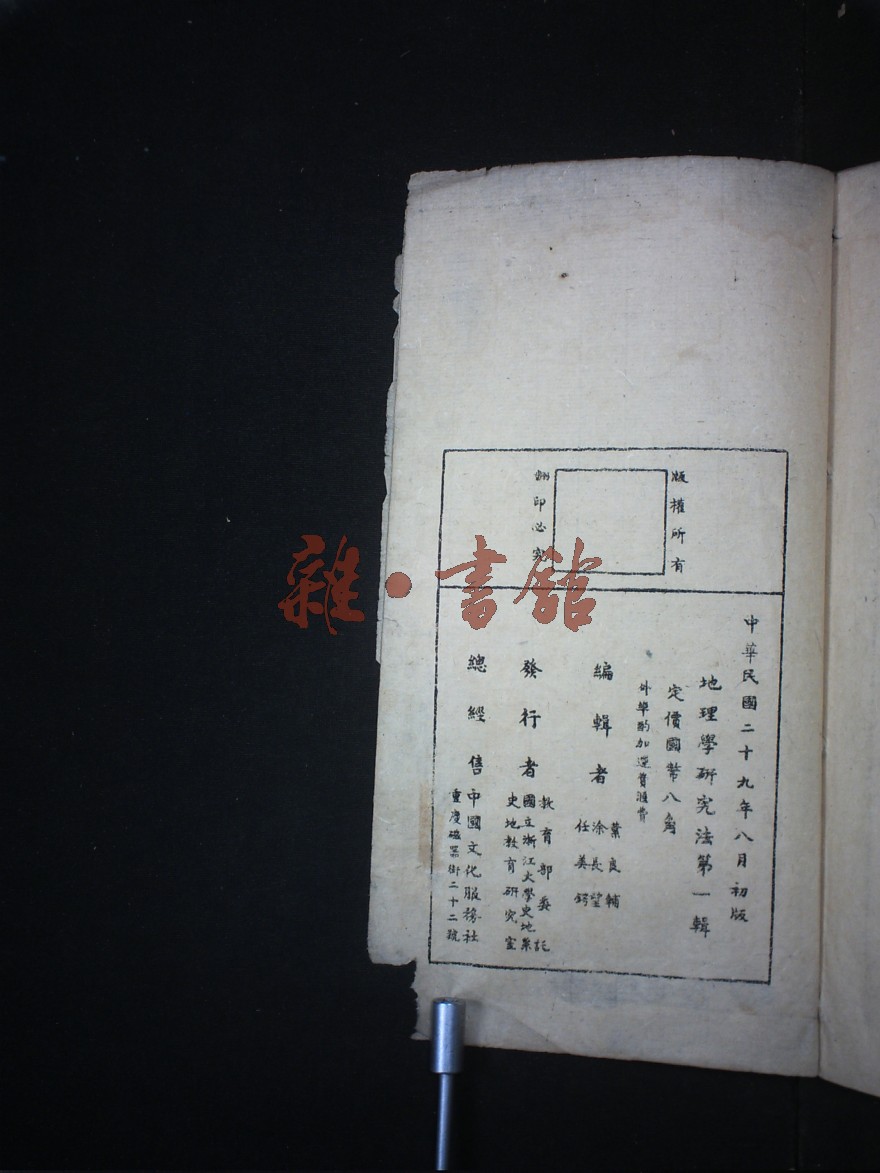 版權所有
翻印必究
中華民國二十九年八月初版
地理學研究法第一輯
定價國幣八角
外埠酌加運費滙費
編輯者
葉良輔
涂長望
任美鍔
發行者
教育部委託
國立浙江大學史地系
史地教育研究室
總經售
中國文化服務社
重慶磁器街二十二號
雜·書館